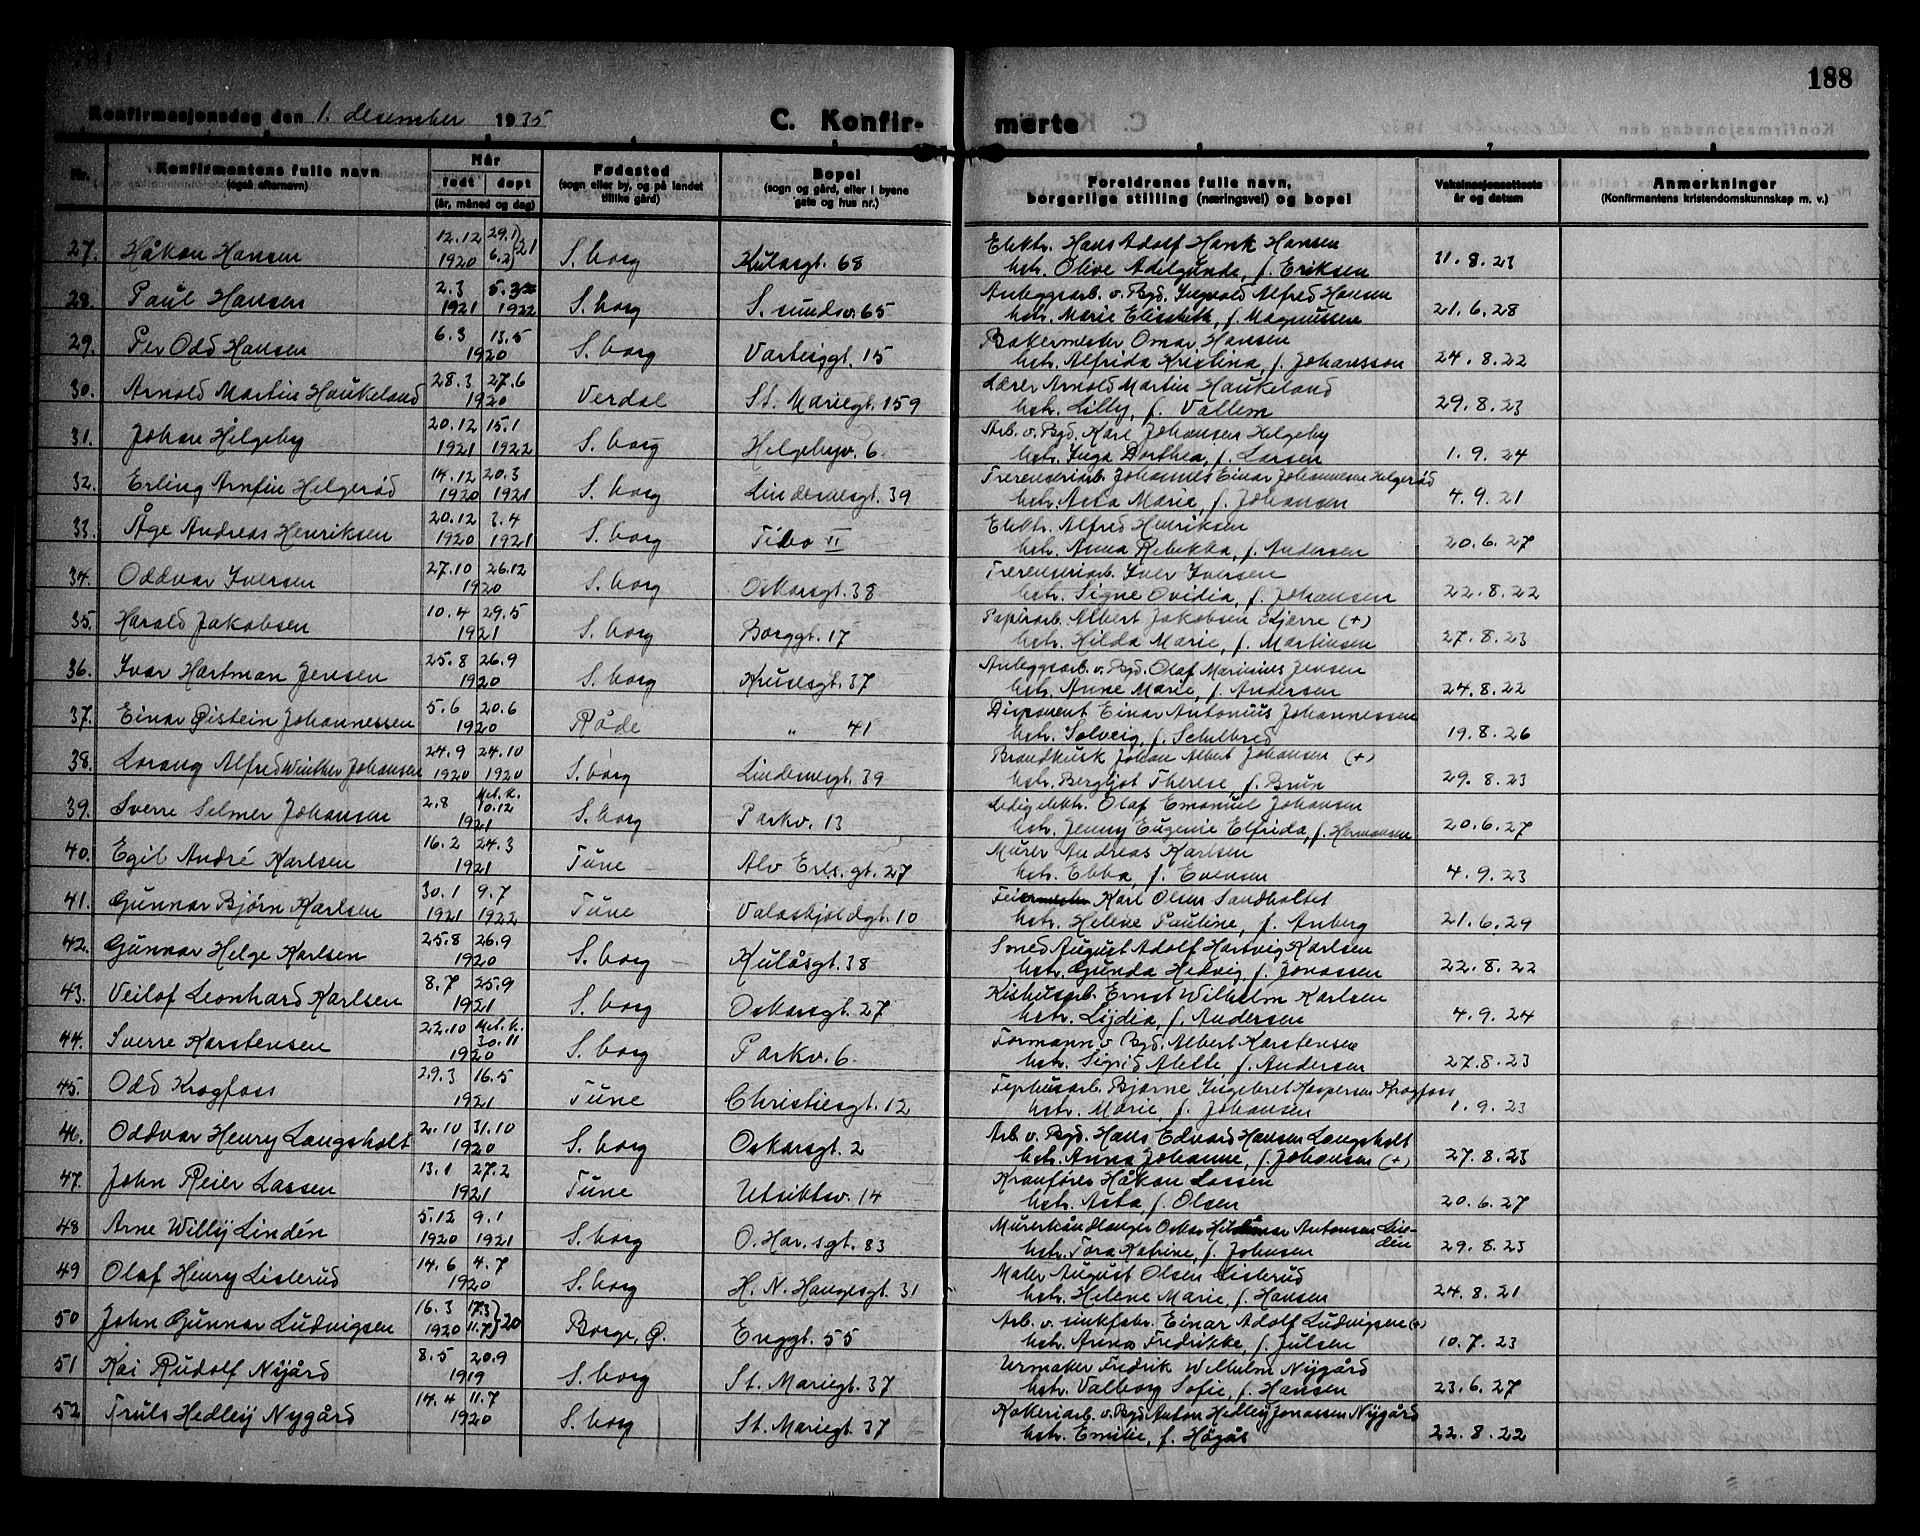 188
Konfirmasjonsdag den 1. desember 1935 C. Konfir- merte
Nr. Konfirmantens fulle navn (også efternavn) Når født døpt (år, måned og dag) Fødested (sogn eller by, og på landet tillike gård) Bopel (sogn og gård, eller i byene gate og hus nr.) Foreldrenes fulle navn, borgerlige stilling (næringsvei) og bopel Vaksinasjonsattests år og datum Anmerkninger (Konfirmantens kristendomskunnskap m. v.)
27. Håkon Hansen 12.12 1920 29.1 6.2 21 S.borg Kulåsgt. 68 Elektr. Hans Adolf Hank Hansen
hstr. Olive Adelgunde, f. Eriksen 31.8.23
28. Paul Hansen 2.3 1921 5.3 1922 S.borg S. sundsv. 65 Anleggsarb. v. Bgd. Ingvald Alfred Hansen
hstr. Marie Elisabeth, f. Magnussen 21.6.28
29. Per Odd Hansen 6.3 13.5 1920 S.borg Varteiggt. 15 Bakermester Omar Hansen
hstr. Alfrida Kristina, f. Johansson 24.8.22
30. Arnold Martin Haukeland 28.3 27.6 1920 Verdal St. Mariegt. 159 Lærer Arnold Martin Haukeland
hstr. Lilly, f. Vallem 29.8.23
31. Johan Helgeby 20.12 1921 15.1 1922 S.borg Helgebyv. 6 Arb. v. Bgd. Karl Johansen Helgeby
hstr. Inga Dorthea, f. Larsen 1.9.24
32. Erling Arnfin Helgerød 14.12 1920 20.3 1921 S.borg Lindemesgt. 39 Trerenseriarb. Johannes Einar Johannesen Helgerød
hstr. Asta Marie, f. Johansen 4.9.21
33. Åge Andreas Henriksen 20.12 1920 3.4 1921 S.borg Tibo II Elektr. Alfred Henriksen
hstr. Anna Rebekka, f. Andersen 20.6.27
34. Oddvar Iversen 27.10 26.12 1920 S.borg Oskarsgt. 38 Trerenseriarb. Iver Iversen
hstr. Signe Ovidia, f. Johansen 22.8.22
35. Harald Jakobsen 10.4 29.5 1921 S.borg Borggt. 17 Papirarb. Albert Jakobsen Skjerre (+)
hstr. Hilda Marie, f. Martinsen 27.8.23
36. Ivar Hartman Jensen 25.8 26.9 1920 S.borg Krusesgt. 37 Anleggsarb. v. Bgd. Olaf Marinius Jensen
hstr. Anne Marie, f. Andersen 24.8.22
37. Einar Øistein Johannessen 5.6 20.6 1920 Råde " 41 Disponent Einar Antonius Johannessen
hstr. Solveig, f. Schelbred 19.8.26
38. Lorang Alfred Winther Johansen 24.9 1920 24.10 1920 S.borg Lindemsgt. 39 Brandkusk Johan Albert Johansen (+)
hstr. Bergljot Therese, f. Brun 29.8.23
39. Sverre Selmer Johansen 2.8 Met.k. 10.12 1921 S.borg Parkv. 13 Ledig elektr. Olaf Emanuel Johansen
hstr. Jenny Eugenie Elfrida, f. Hermansen 20.6.27
40. Egil André Karlsen 16.2 24.3 1921 Tune Alv Erls. gt. 27 Murer Andreas Karlsen
hstr. Ebba, f. Evensen 4.9.23
41. Gunnar Bjørn Karlsen 30.1 1921 9.7 1922 Tune Valaskjoldgt. 10 Feier Karl Olsen Sandholtet
hstr. Helene Pauline, f. Amberg 21.6.29
42. Gunnar Helge Karlsen 25.8 26.9 1920 S.borg Kulåsgt. 38 Smed August Adolf Hartvig Karlsen
hstr. Gunda Hedvig, f. Jonassen 22.8.22
43. Veilof Leonhard Karlsen 8.7 25.9 1921 S.borg Oskarsgt. 27 Kishusarb. Ernst Wilhelm Karlsen
hstr. Lydia, f. Andersen 4.9.24
44. Sverre Karstensen 22.10 Met.k. 30.11 1920 S.borg Parkv. 6 Formann v. Bgd. Albert Karstensen
hstr. Sigrid Alette f. Andersen 27.8.23
45. Odd Krogfoss 29.3 16.5 1921 Tune Christiesgt. 12 Bjarne Ingebret Kaspersen Krogfoss
hstr. Marie, f. Johansen 1.9.23
46. Oddvar Henry Langsholt 2.10 31.10 1920 S.borg Oskarsgt. 2 Arb. v. Bgd. Hans Edvard Hansen Langsholt
hstr. Anna Johanne, f. Johansen (+) 27.8.23
47. John Reier Lassen 13.1 27.2 1921 Tune Utsiktsv. 14 Kranfører Håkon Lassen
hstr. Asta, f. Olsen 20.6.27
48 Arne Willy Lindén 5.12 1920 9.1 1921 S.borg O. Har.sgt. 83 Murerhåndlanger Oskar Hildmar Antonsen Lin-
den
hstr. Tora Katrine, f. Johnsen 29.8.23
49 Olaf Henry Listerud 14.6 4.7 1920 S.borg H. N. Haugesgt. 31 Maler August Olsen Listerud
hstr. Helene Marie, f. Hansen 24.8.21
50 John Gunnar Ludvigsen 16.3 1920 17.3 11.7 20 Borge, Ø. Enggt. 55 Arb. v. sinkfabr. Einar Adolf Ludvigsen (+)
hstr. Anna Fredrikke, f. Julsen 10.7.23
51 Kai Rudolf Nygård 8.5 20.9 1919 S.borg St. Mariegt. 37 Urmaker Fredrik Wilhelm Nygård
hstr. Valborg Sofie, f. Hansen 23.6.27
52 Truls Hedley Nygård 14.4 11.7 1920 S.borg St. Mariegt. 37 Kokeriarb. v. Bgd. Anton Hedley Jonassen Nygård
hstr. Emilie, f. Högås 22.8.22